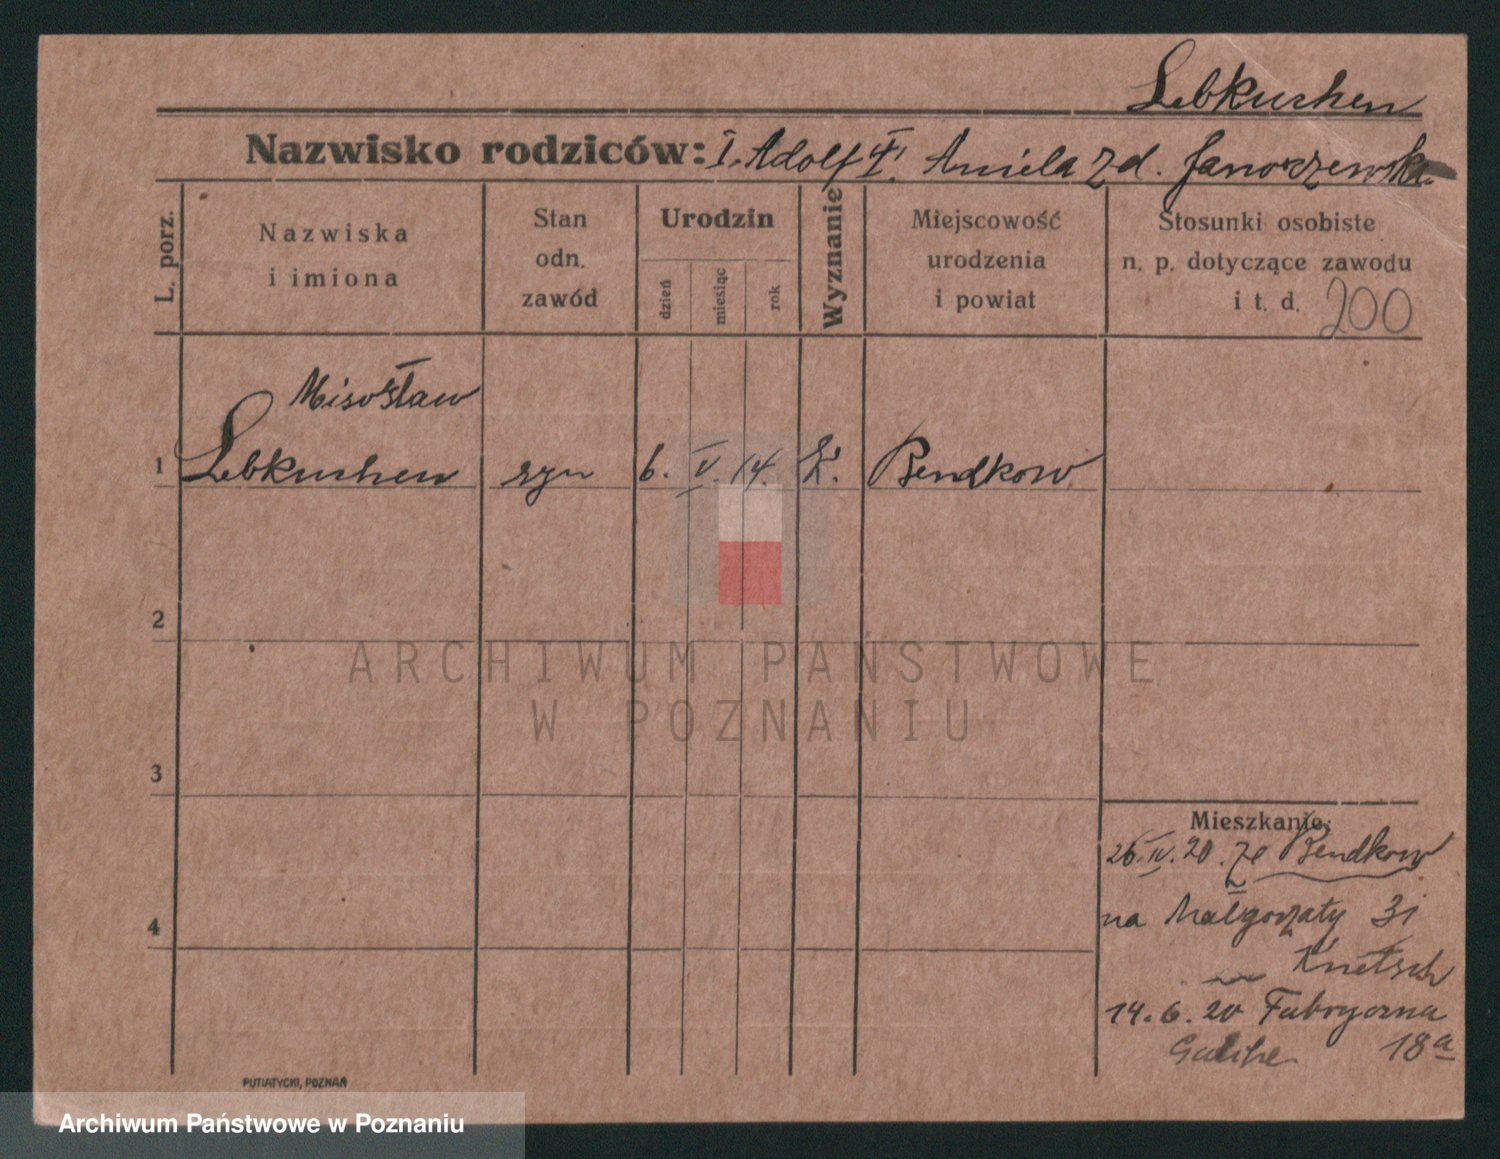 Lebkuchen
Nazwisko rodziców: I. Adolf Aniela zd. Janoszewska
L. porz.
Nazwiska i imiona
Stan odn. zawód
Urodzin
dzień
miesiąc
rok
Wyznanie
Miejscowość urodzenia i powiat
Stosunki osobiste n. p. dotyczące zawodu i t. d. 200
Mirosław
1 Lebkuchen syn 6. V. 14. k. Bendkow
2
3
4
Mieszkanie:
26. IV. 20. ze Bendkow
na Małgorzaty 31
Knetsch
14. 6. 20 Fabryczna
18a
PUTIATYCKI, POZNAŃ
ARCHIWUM PAŃSTWOWE
W POZNANIU
Archiwum Państwowe w Poznaniu